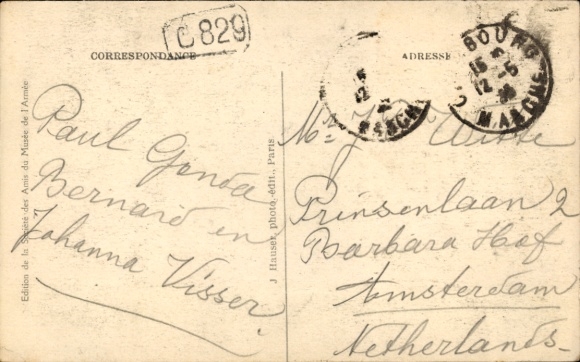 C 829
CORRESPONDANCE
ADRESSE
BOURG
15
12 -5
MANCHE
12
MANCHE
Edition de la Société des Amis du Musée de l'Armée
J. Hauser, photo.-édit., Paris
Paul Gonda
Bernard en
Johanna Visser.
Mr J. Witte
Prinsenlaan 2
Barbara Hof
Amsterdam
Netherlands.